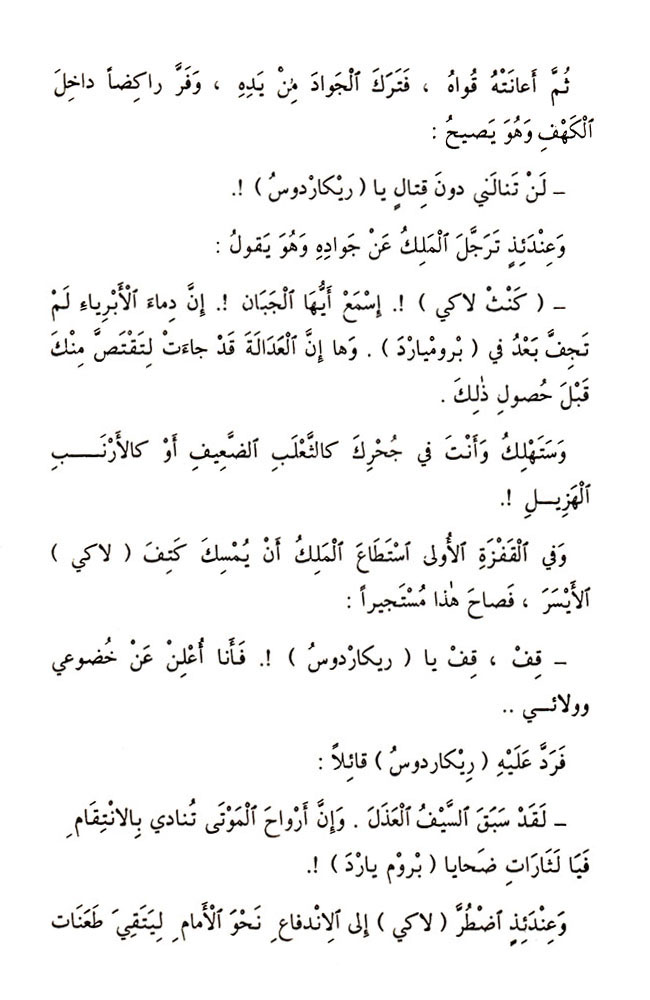 ثُمَّ أَعانَتْهُ قُواهُ ، فَتَرَكَ ٱلْجَوادَ مِنْ يَدِهِ ، وَفَرَّ راكِضاً داخِلَ
ٱلْكَهْفِ وَهُوَ يَصيحُ :
– لَنْ تَنالَني دونَ قِتالٍ يا ( ريْكارْدوسُ ) !.
وَعِنْدَئِذٍ تَرَجَّلَ ٱلْمَلِكُ عَنْ جَوادِهِ وَهُوَ يَقولُ :
– ( كَنْتْ لاكي ) !. إِسْمَعْ أَيُّهَا ٱلْجَبَان !. إِنَّ دِماءَ ٱلْأَبْرِياءِ لَمْ
تَجِفَّ بَعْدُ في ( بْرومْيارْدَ ) . وَها إِنَّ ٱلْعَدَالَةَ قَدْ جاءَتْ لِتَقْتَصَّ مِنْكَ
قَبْلَ حُصولِ ذٰلِكَ .
وَسَتَهْلِكُ وَأَنْتَ في جُحْرِكَ كالثَّعْلَبِ ٱلضَّعِيفِ أَوْ كالأَرْنَـــبِ
ٱلْهَزِيــلِ !.
وَفي ٱلْقَفْزَةِ ٱلأُولى ٱسْتَطَاعَ ٱلْمَلِكُ أَنْ يُمْسِكَ كَتِفَ ( لاكي )
ٱلأَيْسَرَ ، فَصاحَ هٰذا مُسْتَجيراً :
– قِفْ ، قِفْ يا ( ريكارْدوسُ ) !. فَأَنا أُعْلِنْ عَنْ خُضوعي
وولائــي ..
فَرَدَّ عَلَيْهِ ( رِيْكاردوسُ ) قائِلاً :
– لَقَدْ سَبَقَ ٱلسَّيْفُ ٱلْعَذَلَ . وَإِنَّ أَرْواحَ ٱلْمَوْتَى تُنادي بِالانْتِقَامِ
فَيَا لَثَارَاتِ ضَحايا ( بْرومْ يارْدَ ) !.
وَعِنْدَئِذٍ ٱضْطُرَّ ( لاكي ) إِلى ٱلِانْدفاعِ نَحْوَ ٱلْأَمامِ لِيَتَقِيَ طَعَنَات